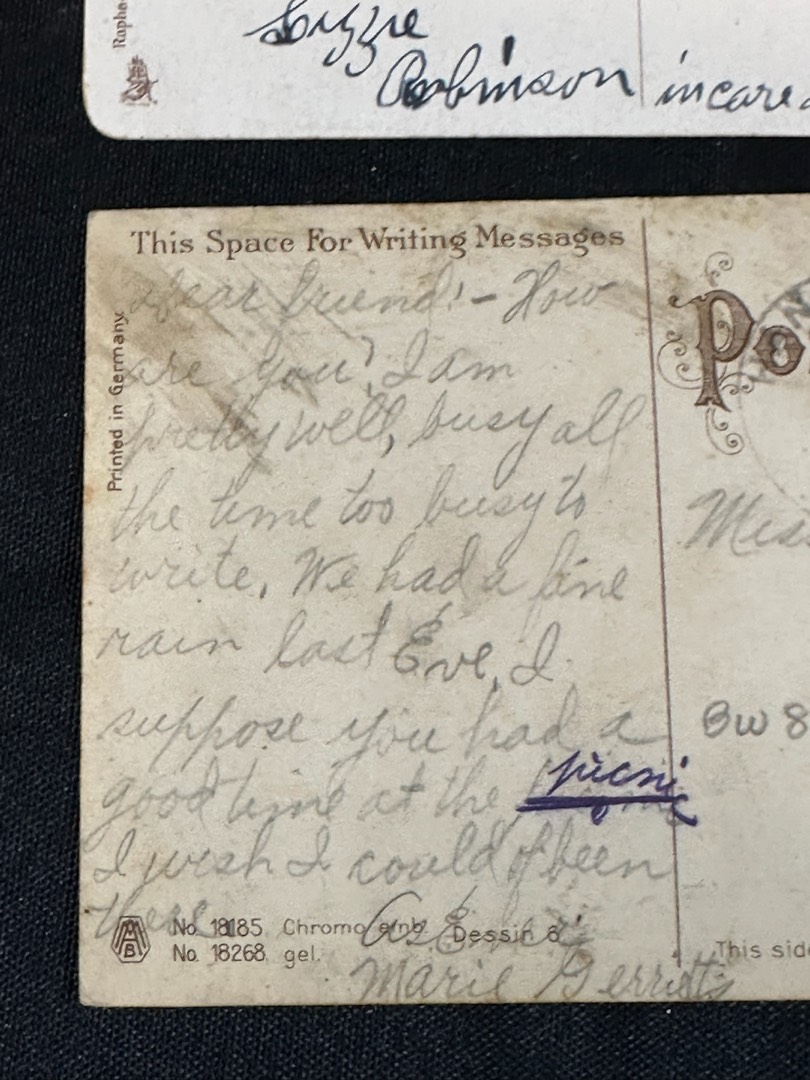 Raphae
Lizzie
Robinson in care
This Space For Writing Messages
Printed in Germany.
Dear friend:- How
are you? I am
pretty well, busy all
the time too busy to
write. We had a fine
rain last Eve, I
suppose you had a
good time at the picnic
I wish I could of been
there
No. 18185. Chromo emb. Dessin 6.
No. 18268. gel.
As Ever
Marie Gerriets
MAB
Po
Miss
BW 8
This side